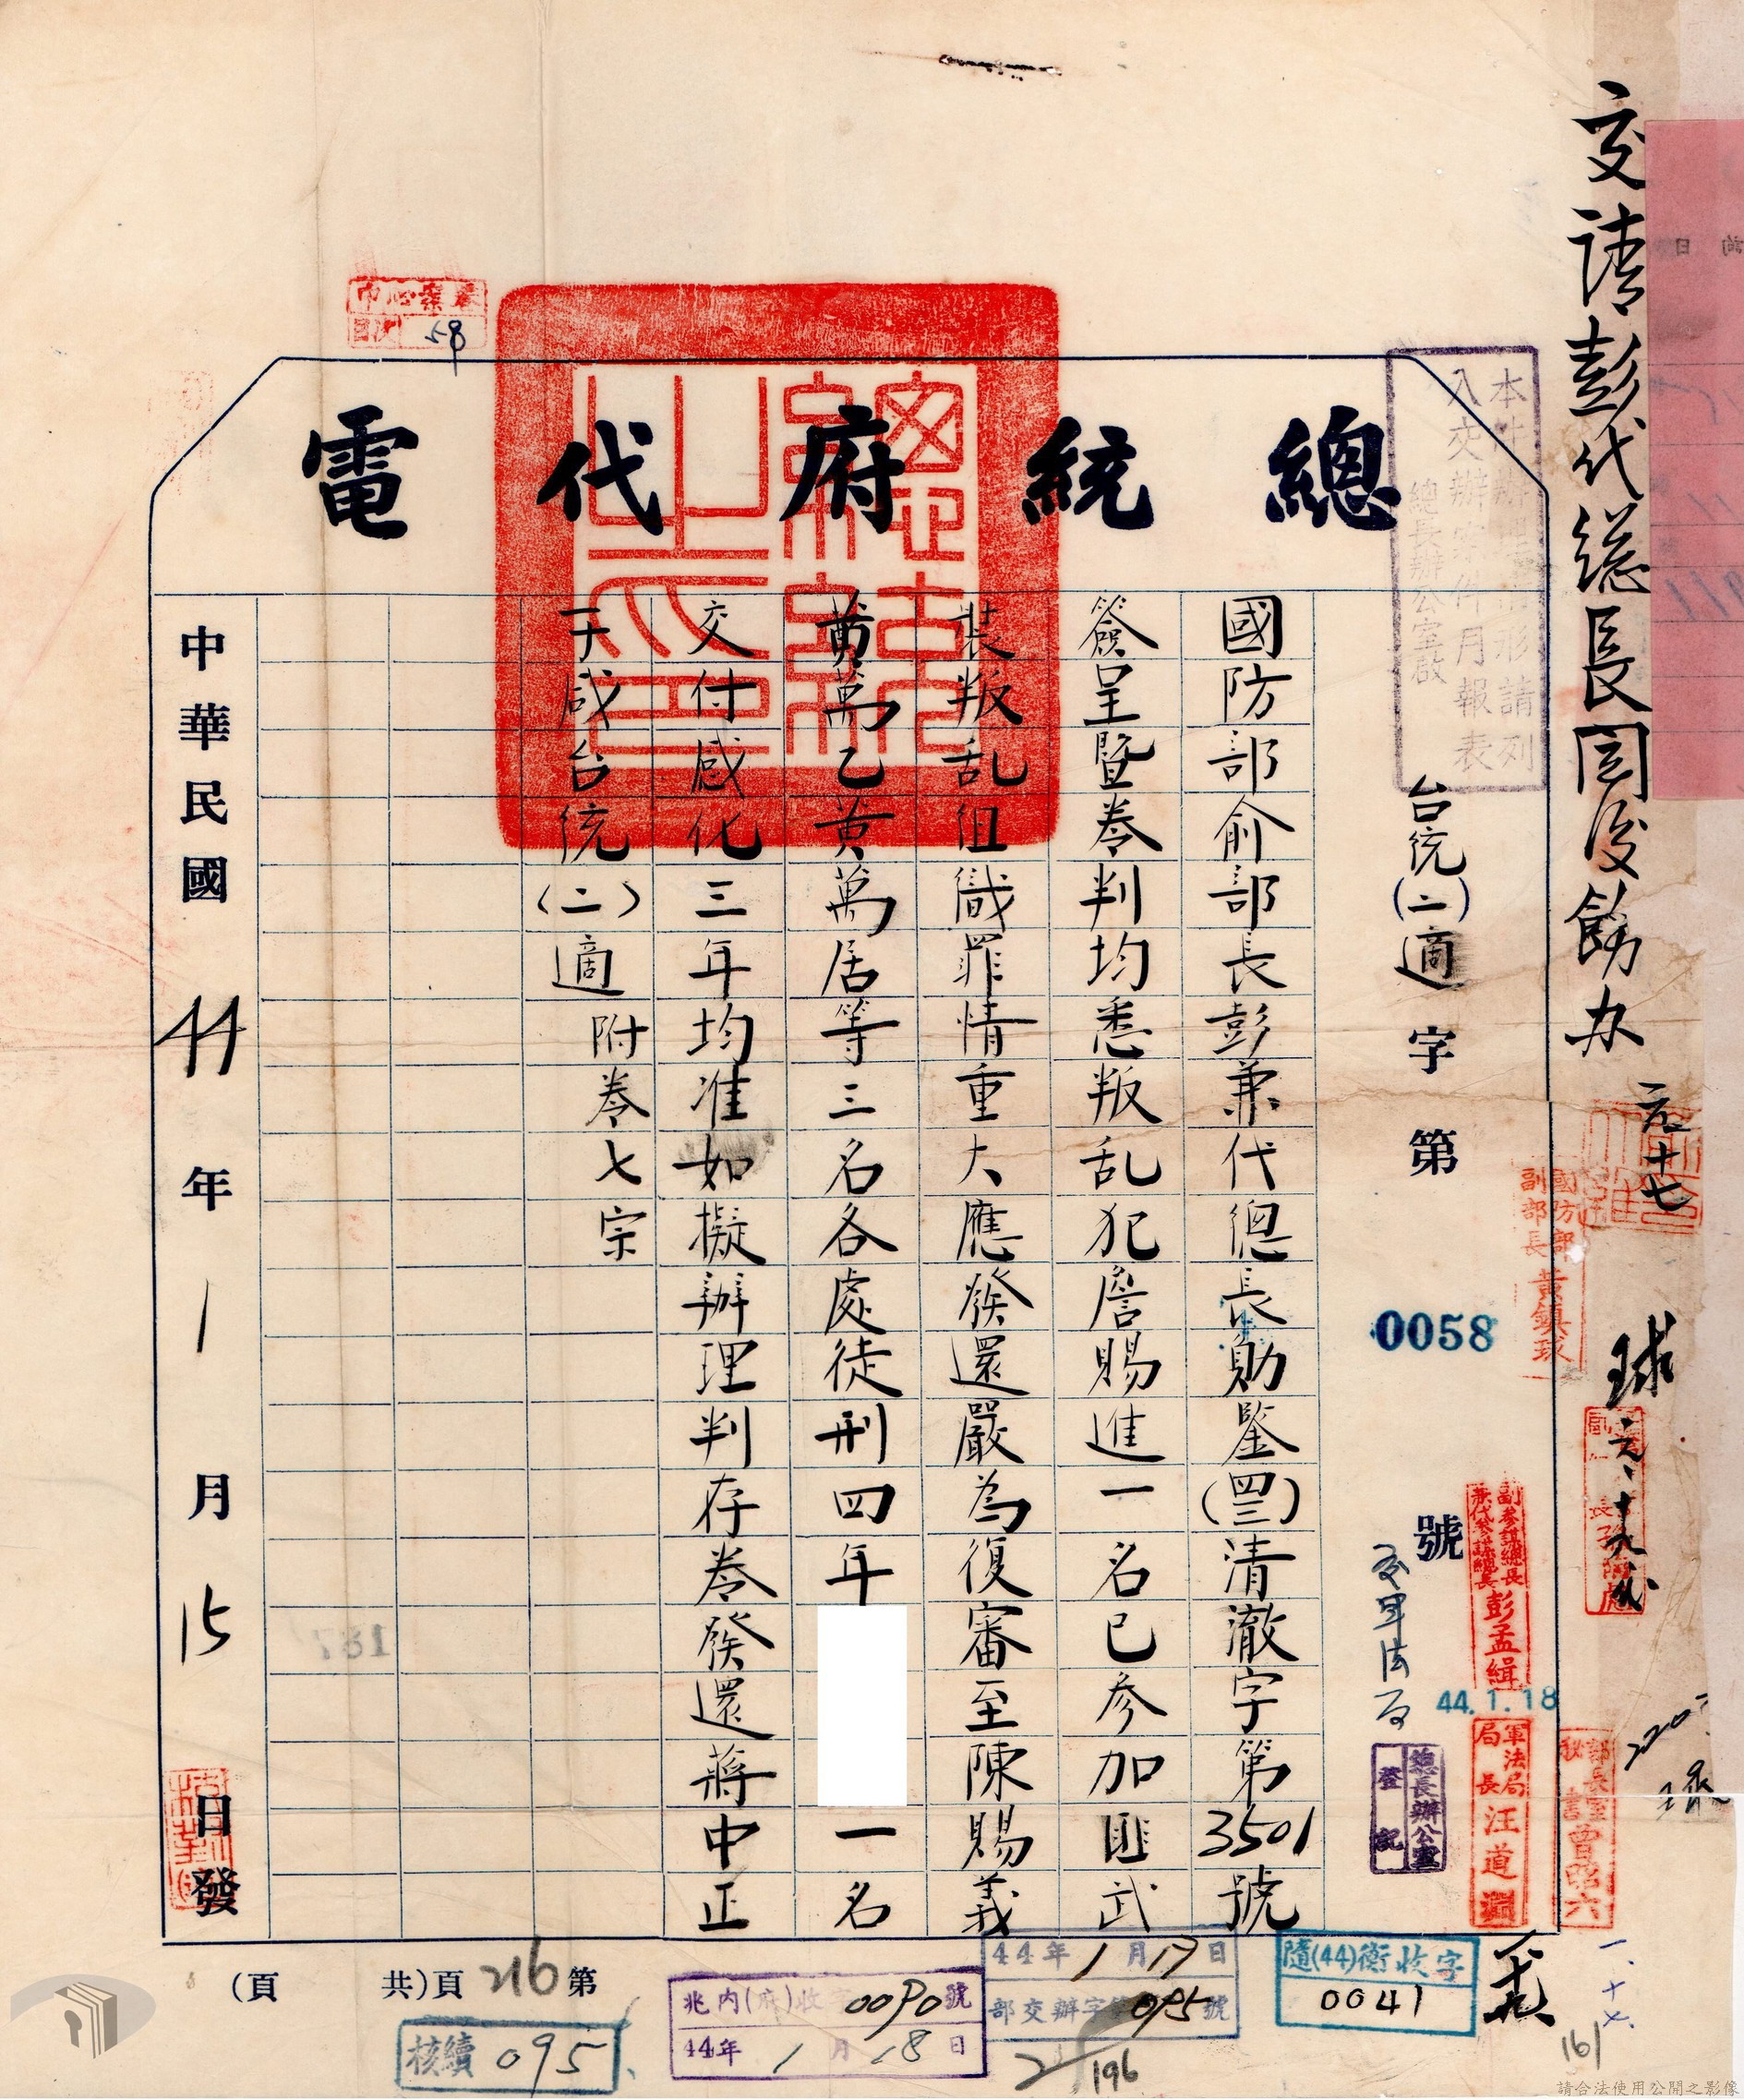 交請彭代總長閱後飭办
元十七
球
元.十九
本件辦理情形請列
入交辦案件月報表
總長辦公室啟
總統府代電
台統(二)適字第0058號
國防部俞部長彭兼代總長勛鑒(四三)清澈字第3501號
簽呈暨卷判均悉叛乱犯詹賜進一名已參加匪武
裝叛乱组織罪情重大應發還嚴為復審至陳賜義
黃萬乙黃萬居等三名各處徒刑四年
一名
交付感化三年均准如擬辦理判存卷發還蔣中正
子咸台統(二)適
附卷七宗
中華民國44年1月15日發
國防部
副部長
黃鎮球
副參謀總長
兼代參謀總長
彭孟緝
44.1.18
軍法局
局長
汪道淵
曾昭六
總長辦公室
登記
58
781
第216頁(共
頁)
隨(44)衡收字
0041
44年1月17日
部交辦字第095號
兆內(府)收字0090號
44年1月18日
核續095
2/196
161
一.十七.
請合法使用公開之影像